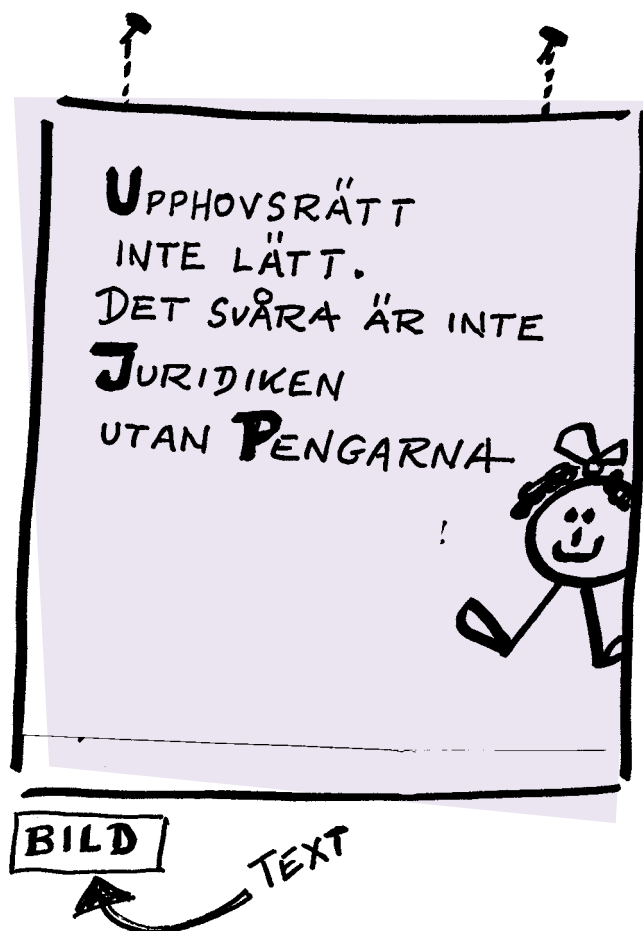 UPPHOVSRÄTT
INTE LÄTT.
DET SVÅRA ÄR INTE
JURIDIKEN
UTAN PENGARNA
!
BILD
TEXT